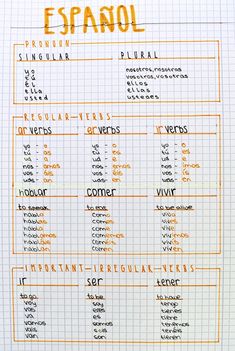 ESPAÑOL
PRONOUN
SINGULAR PLURAL
yo nosotros, nosotras
tú vosotros, vosotras
él ellos
ella ellas
usted ustedes
REGULAR VERBS
ar verbs er verbs ir verbs
yo - o yo - o yo - o
tú - as tú - es tú - es
ud - a ud - e ud - e
nos - amos nos - emos nos - imos
vos - áis vos - éis vos - ís
uds - an uds - en uds - en
hablar comer vivir
to speak to eat to be alive
hablo como vivo
hablas comes vives
habla come vive
hablamos comemos vivimos
habláis coméis vivís
hablan comen viven
IMPORTANT IRREGULAR VERBS
ir ser tener
to go to be to have
voy soy tengo
vas eres tienes
va es tiene
vamos somos tenemos
vais sois tenéis
van son tienen